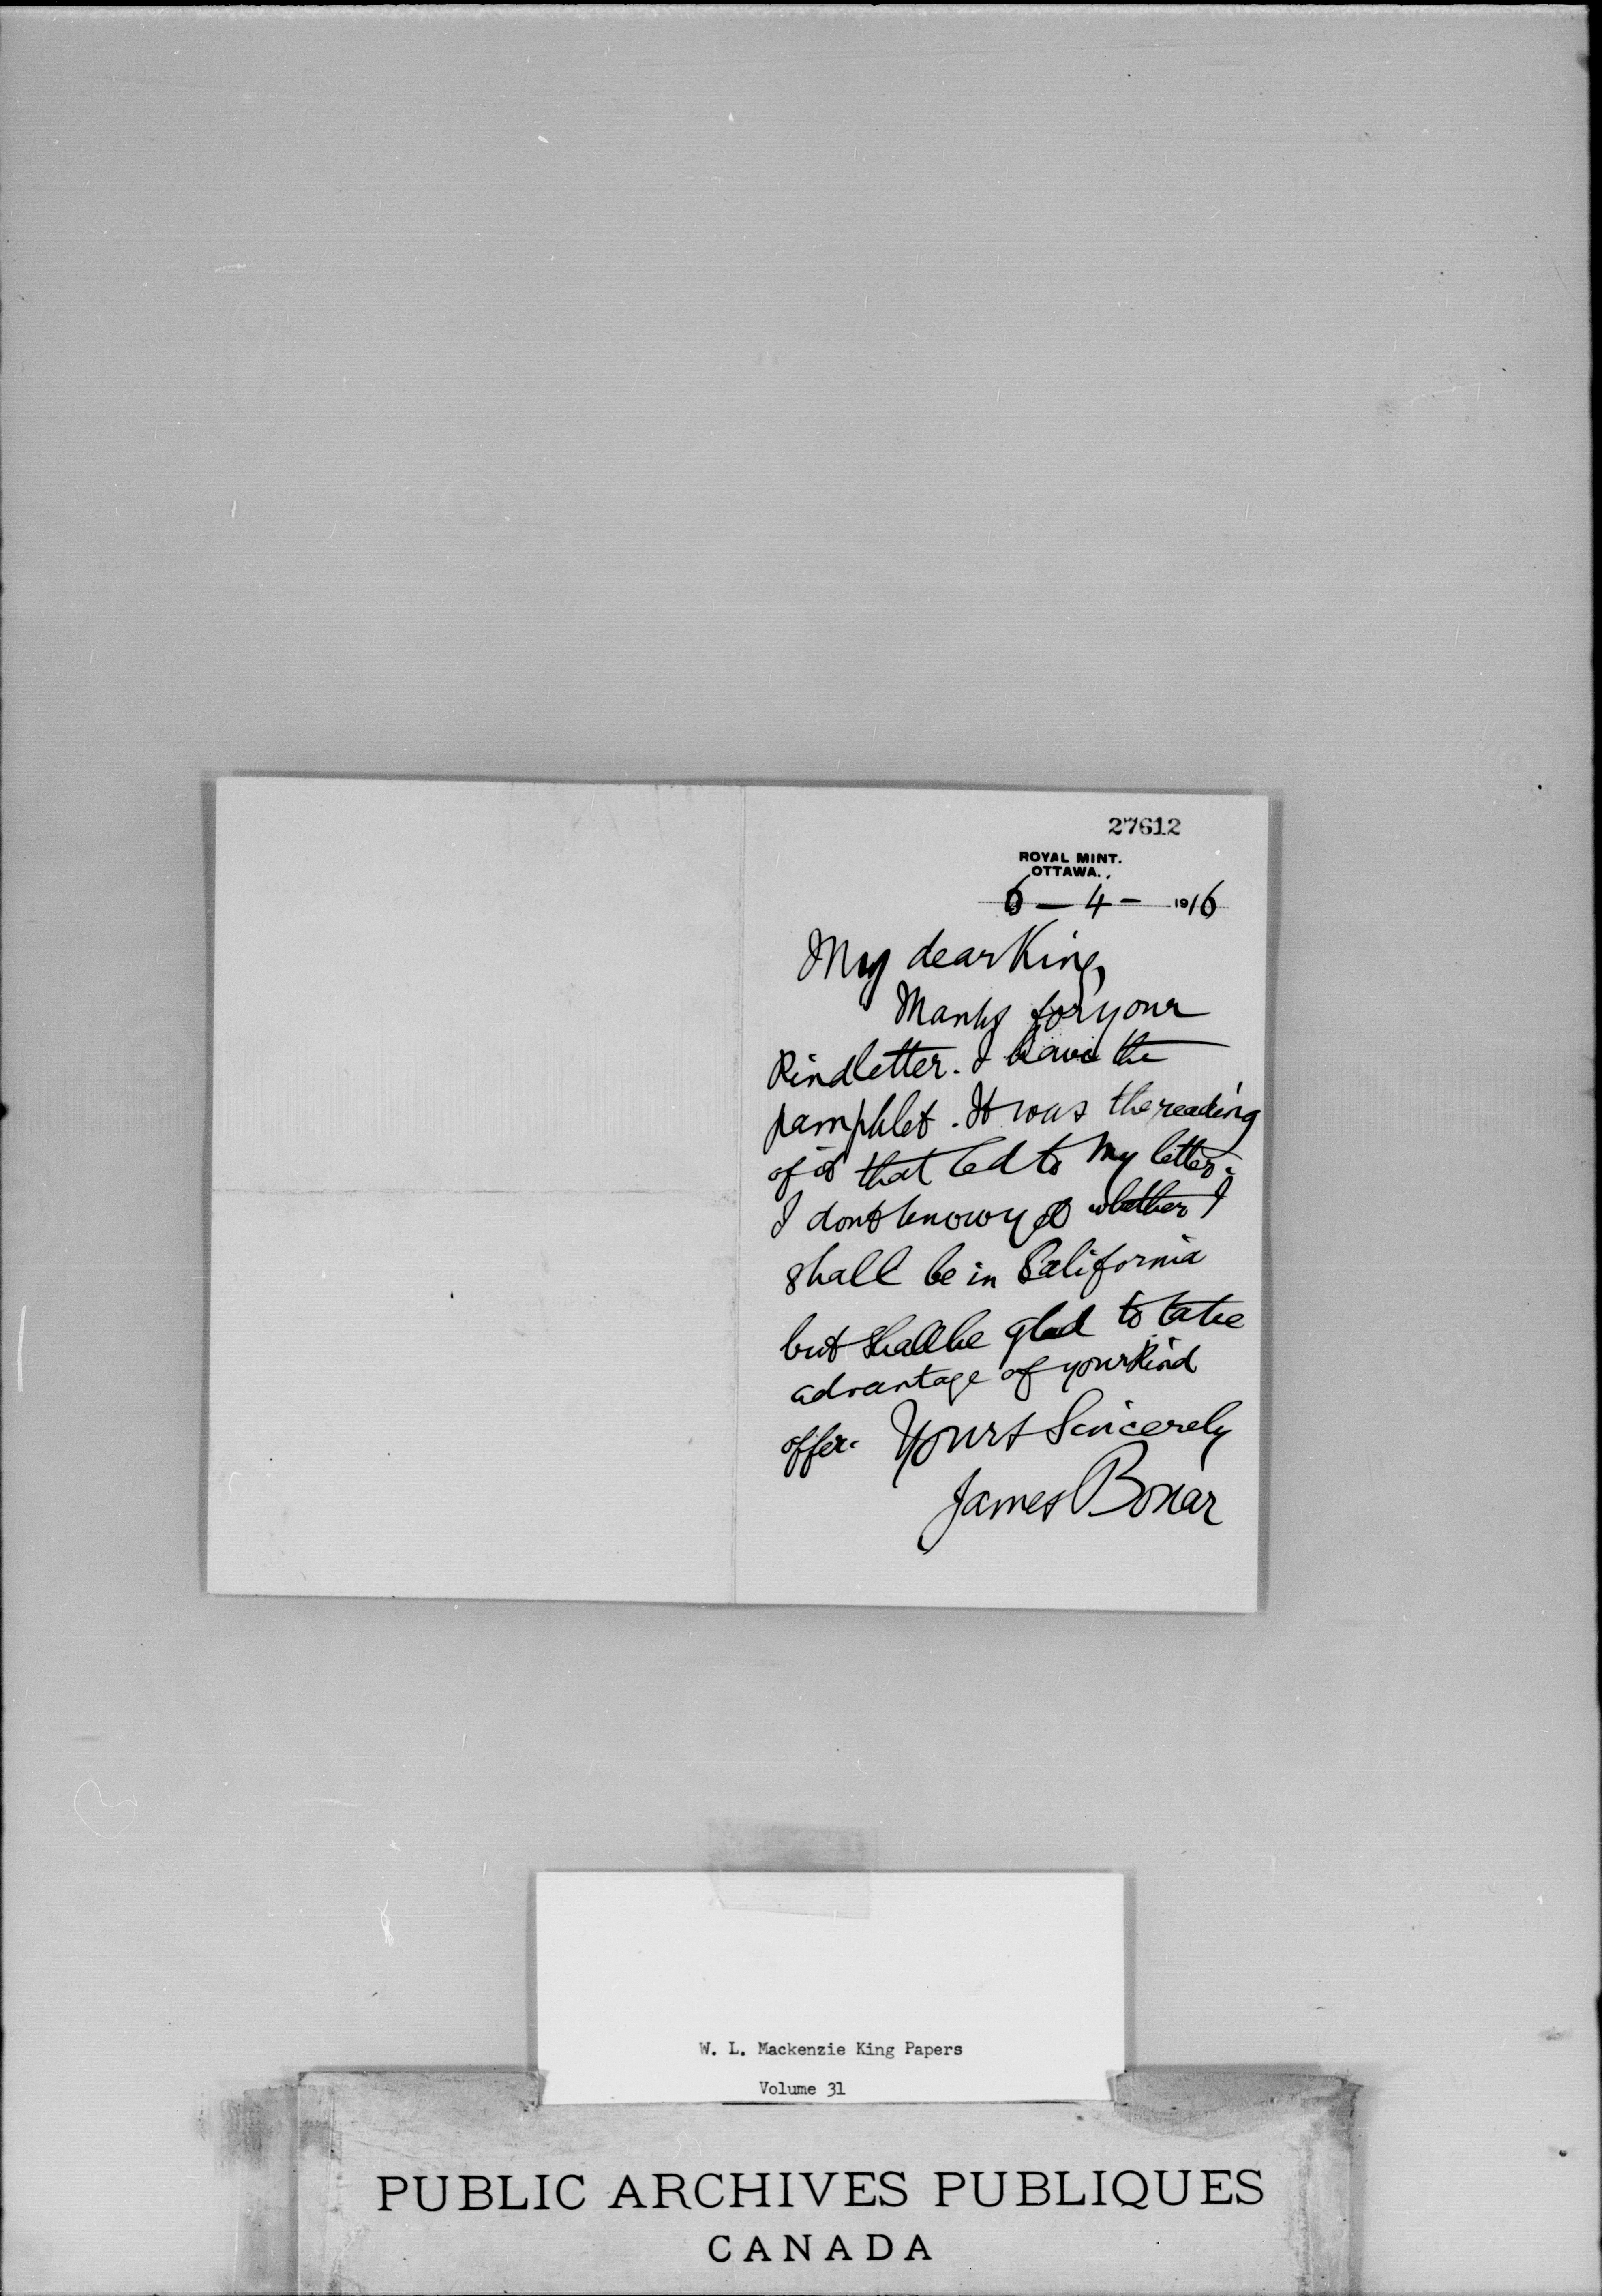 27612
ROYAL MINT.
OTTAWA.
6 - 4 - 1916
My dear King,
Thanks for your
kind letter. I have the
pamphlet. It was the reading
of it that led to my letter.
I don't know yet whether I
shall be in California
but shall be glad to take
advantage of your kind
offer. Yours sincerely
James Bonar
W. L. Mackenzie King Papers
Volume 31
PUBLIC ARCHIVES PUBLIQUES
CANADA